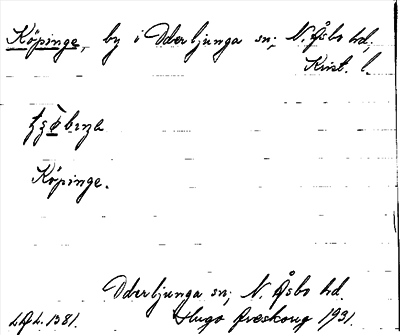 Köpinge, by i Oderljunga sn; N. Åsbo hd,
Krist. l.
Köpinge.
Oderljunga sn; N. Åsbo hd.
LAL. 1381. Hugo Areskoug 1931.